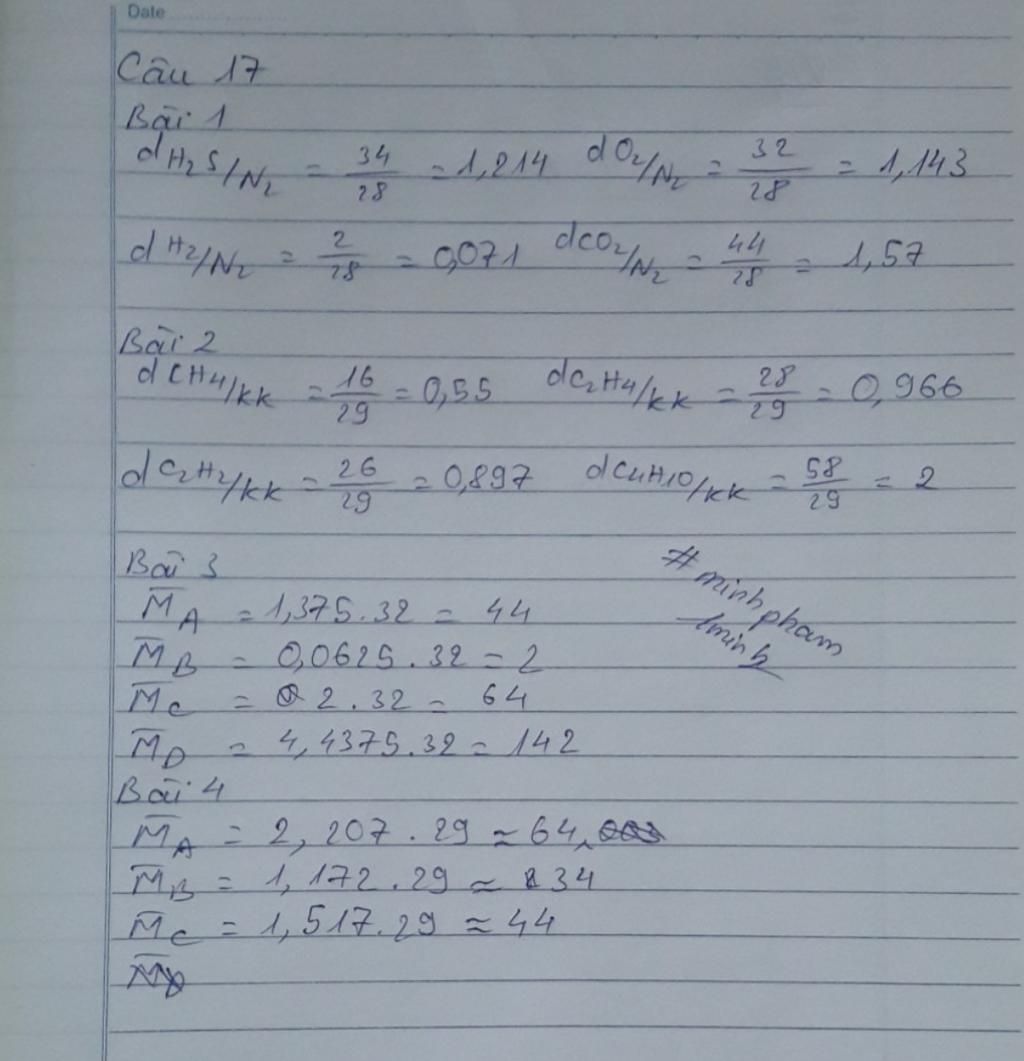 Date
Câu 17
Bài 1
d H₂S/N₂ = 34/28 = 1,214 d O₂/N₂ = 32/28 = 1,143
d H₂/N₂ = 2/28 = 0,071 dCO₂/N₂ = 44/28 = 1,57
Bài 2
d CH4/kk = 16/29 = 0,55 dC₂H4/kk = 28/29 = 0,966
d C₂H₂/kk = 26/29 = 0,897 dC4H10/kk = 58/29 = 2
Bài 3
M̅_A = 1,375.32 = 44
M̅_B = 0,0625.32 = 2
M̅_C = 2.32 = 64
M̅_D = 4,4375.32 = 142
# minh pham
1minh
Bài 4
M̅_A = 2,207.29 ≈ 64
M̅_B = 1,172.29 ≈ 34
M̅_C = 1,517.29 ≈ 44